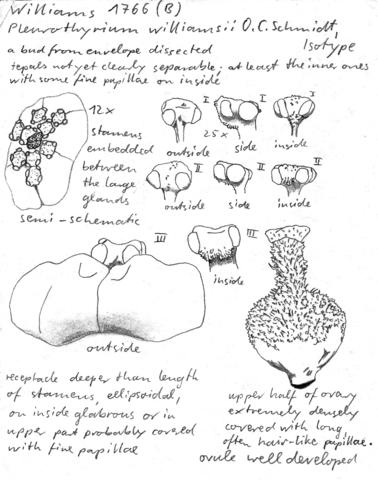 Williams 1766 (B)
Pleurothyrium williamsii O.C. Schmidt,
Isotype
a bud from envelope dissected
tepals not yet clearly separable; at least the inner ones
with some fine papillae on inside
12x
stamens
embedded
between
the large
glands
semi-schematic
I
I
I
25x
outside
side
inside
II
II
II
outside
side
inside
III
III
inside
outside
receptacle deeper than length
of stamens, ellipsoidal,
on inside glabrous or in
upper part probably covered
with fine papillae
upper half of ovary
extremely densely
covered with long,
often hair-like papillae.
ovule well developed